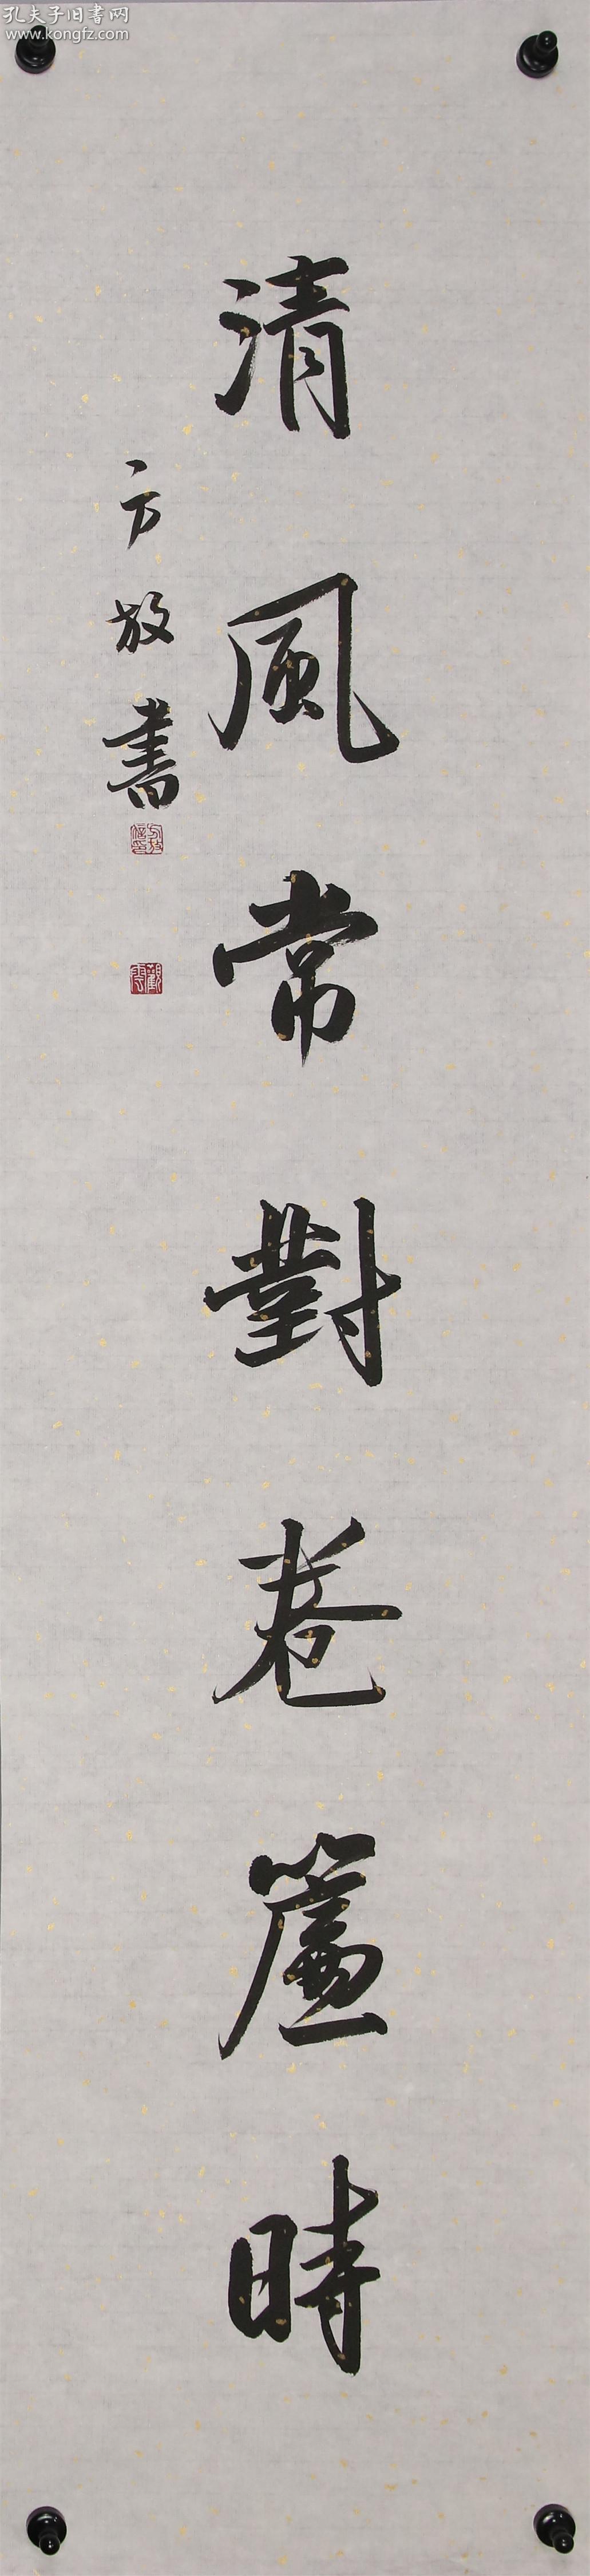 孔夫子旧书网
www.kongfz.com
清風常對卷簾時
方放書